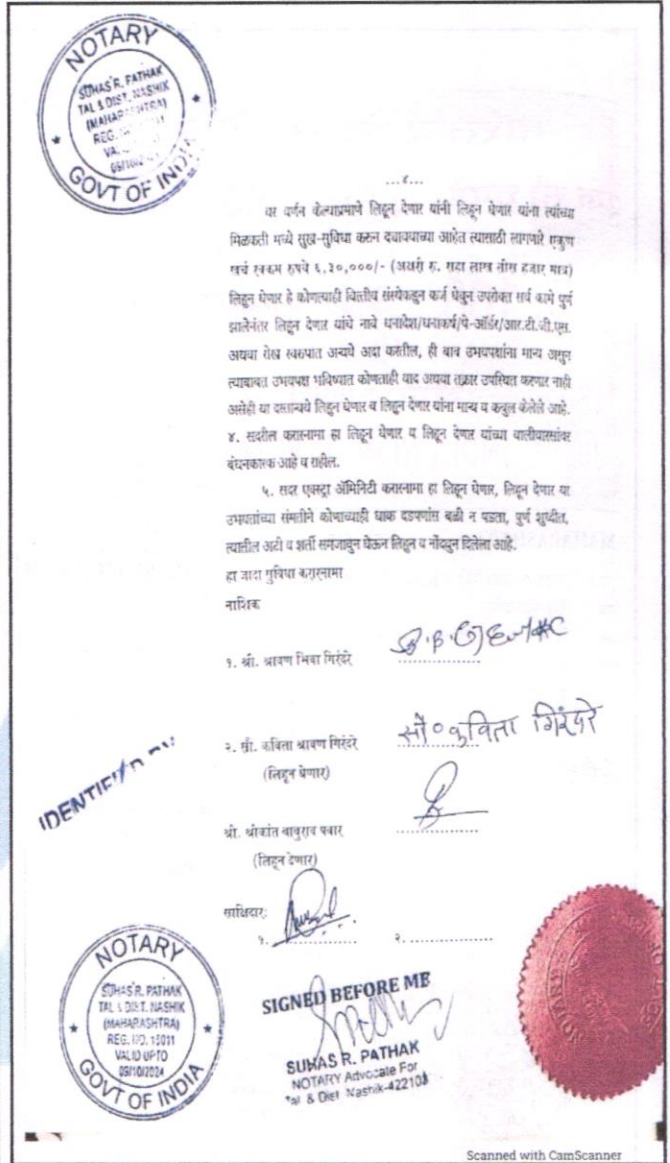 NOTARY
SUHAS R. PATHAK
TAL & DIST. NASHIK
(MAHARASHTRA)
REG. NO.
GOVT OF INDIA
...४...
वर वर्णन केल्याप्रमाणे लिहून देणार यांनी लिहून घेणार यांना त्यांच्या
मिळकती मध्ये सुख-सुविधा करुन दयावयाच्या आहेत त्यासाठी लागणारे एकुण
खर्च रक्कम रुपये ६,३०,०००/- (अक्षरी रु. सहा लाख तीस हजार मात्र)
लिहून घेणार हे कोणत्याही वित्तीय संस्थेकडुन कर्ज घेवुन उपरोक्त सर्व कामे पुर्ण
झालेनंतर लिहून देणार यांचे नावे धनादेश/धनाकर्ष/पे-ऑर्डर/आर.टी.जी.एस.
अथवा रोख स्वरुपात अन्वये अदा करतील, ही बाब उभयपक्षांना मान्य असुन
त्याबाबत उभयपक्ष भविष्यात कोणताही वाद अथवा तक्रार उपस्थित करणार नाही
असेही या दस्तान्वये लिहून घेणार व लिहून देणार यांना मान्य व कबुल केलेले आहे.
४. सदरील करारनामा हा लिहून घेणार व लिहून देणार यांच्या वालीवारसांवर
बंधनकारक आहे व राहील.
५. सदर एक्स्ट्रा ॲमिनिटी करारनामा हा लिहून घेणार, लिहून देणार या
उभयतांच्या संमतीने कोणाच्याही धाक दडपणांस बळी न पडता, पुर्ण शुध्दीत,
त्यातील अटी व शर्ती समजावुन घेऊन लिहून व नोंदवुन दिलेला आहे.
हा जादा सुविधा करारनामा
नाशिक
१. श्री. श्रावण भिवा गिरंदरे ..............
२. सौ. कविता श्रावण गिरंदरे सौ० कविता गिरंदरे
(लिहून घेणार)
IDENTIFI
श्री. श्रीकांत बाबुराव पवार ..............
(लिहून देणार)
साक्षिदार:
१. .............. २. ..............
NOTARY
SUHAS R. PATHAK
TAL & DIST. NASHIK
(MAHARASHTRA)
REG. NO. 15011
VALID UPTO
09/10/2024
GOVT OF INDIA
SIGNED BEFORE ME
SUHAS R. PATHAK
NOTARY Advocate For
Tal & Dist Nashik-422103
NOTARY
Scanned with CamScanner